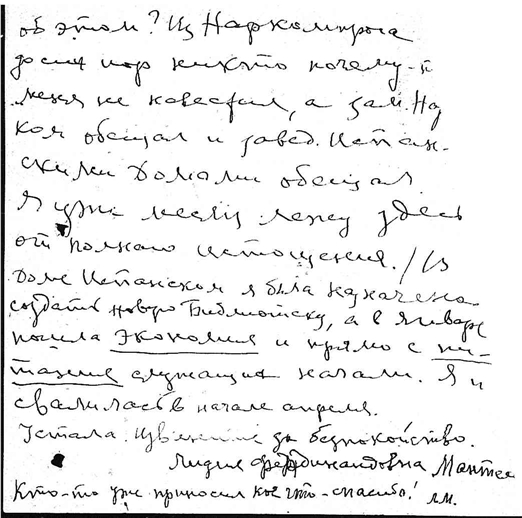 об этом? Из Наркомпроса
до сих пор никто почему-т
меня не навестил, а зам. На
ком обещал и завед. Испан-
скими Домами обещал.
Я уже месяц лежу здесь
от полного истощения. / В
Доме Испанском я была назначена
создать новую Библиотеку, а в январе
пошла Экономия и прямо с пи-
тания служащих начали. Я и
свалилась в начале апреля.
Устала. Извините за беспокойство.
Лидия Фердинандовна Мантей
Кто-то уже приносил кое что-спасибо! Л.М.